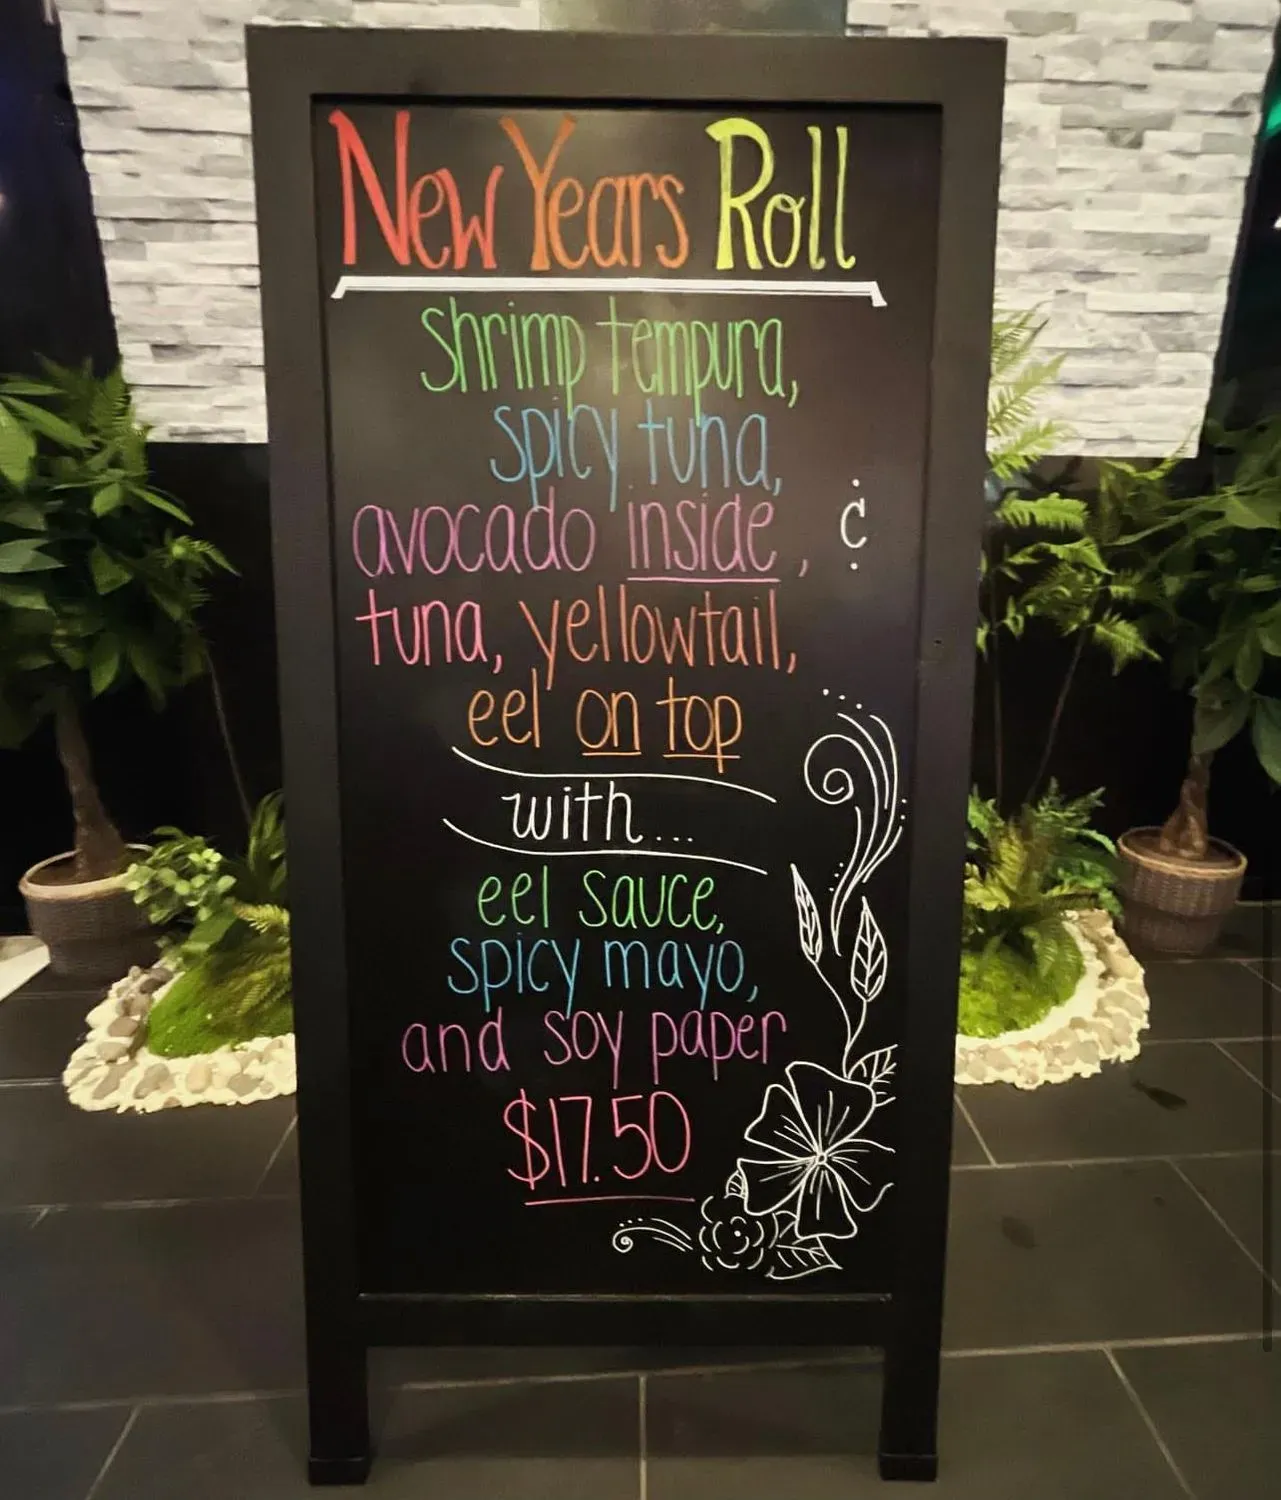 New Years Roll
shrimp tempura,
spicy tuna,
avocado inside, &
tuna, yellowtail,
eel on top
with...
eel sauce,
spicy mayo,
and soy paper
$17.50